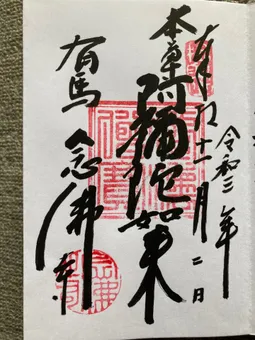 令和二年
奉拝 十一月二日
本尊 阿彌陀如来
有馬 念佛寺